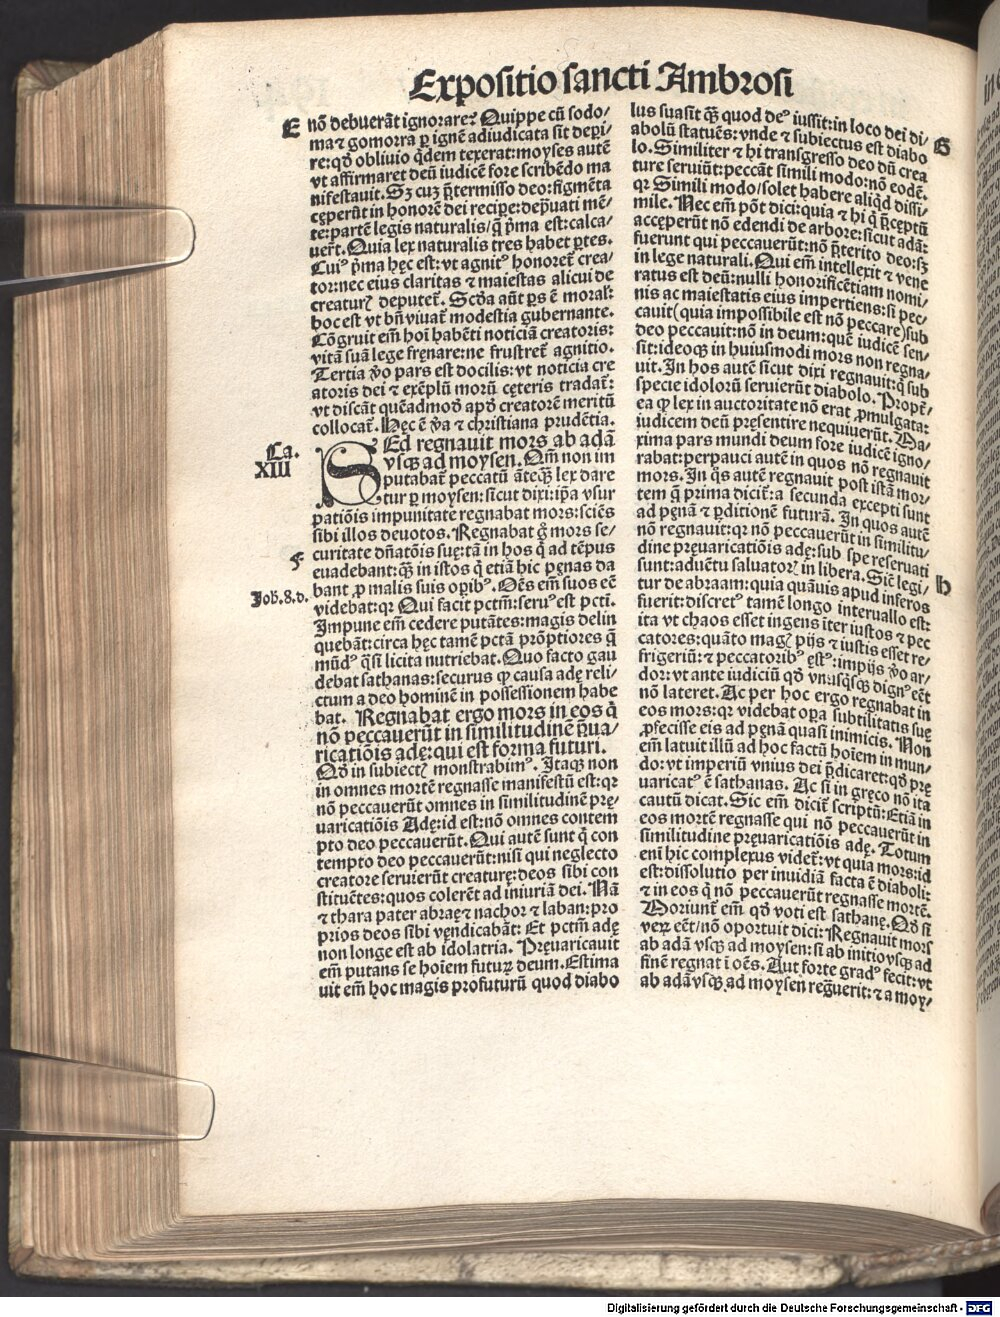 Expositio sancti Ambrosi
E
nō debuerāt ignorare? Quippe cū sodo/
ma ⁊ gomorra ꝑ ignē adiudicata sit deperi/
re: qđ obliuio q̇dem texerat: moyses autē
vt affirmaret deū iudicē fore scribēdo ma
nifestauit. Sꝫ cuꝫ p̄termisso deo: figmēta
cęperūt in honorē dei recipe: dep̄uati mē/
te: partē legis naturalis/ q̄ p̄ma est: calca/
uer̄t. Quia lex naturalis tres habet ꝑtes.
Cuiꝰ p̄ma hęc est: vt agnitꝰ honoret̄ crea/
tor: nec eius claritas ⁊ maiestas alicui de
creaturꝭ deputet̄. Scđa aūt ꝑs ē moral̄:
hoc est vt bn̄ viuat̄ modestia gubernante.
Cōgruit em̄ hoī habēti noticiā creatoris:
vitā suā lege fręnare: ne frustret̄ agnitio.
Tertia ꝟo pars est docilis: vt noticia cre
atoris dei ⁊ exēplū morū cęteris tradat̄:
vt discāt quēadmođ apđ creatorē meritū
collocat̄. Hęc ē ꝟa ⁊ christiana prudētia.
Ca.
XIII
SEd regnauit mors ab adā
vsqꝫ ad moysen. Qm̄ non im
putabat̄ peccatū āteqꝫ̄ lex dare
tur ꝑ moysen: sicut dixi: ip̄a vsur
patiōis impunitate regnabat mors: sciēs
sibi illos deuotos. Regnabat g̊ mors se/
F
curitate dn̄atōis suę: tā in hos q̇ ad tēpus
euadebant: qꝫ̄ in istos q̇ etiā hic pęnas da
bant ꝓ malis suis opibꝰ. Oēs em̄ suos eē
Joh. 8. d.
videbat: qꝛ Qui facit pctm̄: seruꝰ est pcti.
Impune em̄ cedere putātes: magis delin
quebāt: circa hęc tamē pctā prōptiores q̄
mūdꝰ q̄si licita nutriebat. Quo facto gau
debat sathanas: securus ꝙ causa adę reli/
ctum a deo hominē in possessionem habe
bat. Regnabat ergo mors in eos q̇
nō peccauerūt in similitudinē p̄ua/
ricatiōis adę: qui est forma futuri.
Qđ in subiectꝭ monstrabimꝰ. Itaqꝫ non
in omnes mortē regnasse manifestū est: qꝛ
nō peccauerūt omnes in similitudinē pрę/
uaricatiōis Adę: id est: nō omnes contem
pto deo peccauerūt. Qui autē sunt q̇ con
tempto deo peccauerūt: nisi qui neglecto
creatore seruierūt creaturę: deos sibi con
stituētes: quos colerēt ad iniuriā dei. Nā
⁊ thara pater abraę ⁊ nachor ⁊ laban: pro
prios deos sibi vendicabāt: Et pctm̄ adę
non longe est ab idolatria. Pręuaricauit
em̄ putans se hoīem futurꝝ deum. Estima
uit em̄ hoc magis profuturū quod diabo
lus suasit qꝫ̄ quod deꝰ iussit: in loco dei di/
G
abolū statuēs: vnde ⁊ subiectus est diabo
lo. Similiter ⁊ hi transgresso deo dū crea
ture seruiūt: peccāt simili modo: nō eodē.
qꝛ Simili modo/ solet habere aliqđ dissi/
mile. Nec em̄ pōt dici: quia ⁊ hi q̇ p̄ceptū
acceperūt nō edendi de arbore: sicut adā:
fuerunt qui peccauerūt: nō p̄terito deo: sꝫ
in lege naturali. Qui em̄ intellexit ⁊ vene
ratus est deū: nulli honorificētiam nomi/
nis ac maiestatis eius impertiens: si pec/
cauit (quia impossibile est nō peccare) sub
deo peccauit: nō in deum: quē iudicē sen/
sit: ideoqꝫ in huiusmodi mors non regna/
uit. In hos autē sicut dixi regnauit: q̇ sub
specie idolorū seruierūt diabolo. Propt̄/
ea ꝙ lex in auctoritate nō erat ꝓmulgata:
iudicem deū pręsentire nequiuerūt. Ma/
xima pars mundi deum fore iudicē igno/
rabat: perpauci autē in quos nō regnauit
mors. In q̇s autē regnauit post istā mor/
tem q̄ prima dicit̄: a secunda excepti sunt
ad pęnā ⁊ ꝑditionē futurā. In quos autē
nō regnauit: qꝛ nō peccauerūt in similitu/
dine pręuaricatiōis adę: sub spe reseruati
sunt: aduētu saluatorꝭ in libera. Sic̄ legi/
H
tur de abraam: quia quāuis apud inferos
fuerit: discretꝰ tamē longo interuallo est:
ita vt chaos esset ingens iter iustos ⁊ pec
catores: quāto magꝭ pijs ⁊ iustis esset re/
frigeriū: ⁊ peccatoribꝰ ęstꝰ: impijs ꝟo ar/
dor: vt ante iudiciū qđ vnusq̇sqꝫ dignꝰ eēt
nō lateret. Ac per hoc ergo regnabat in
eos mors: qꝛ videbat opa subtilitatis suę
ꝓfecisse eis ad pęnā quasi inimicis. Non
em̄ latuit illū ad hoc factū hoīem in mun/
do: vt imperiū vnius dei p̄dicaret: qđ prę
uaricatꝰ ē sathanas. Ac si in gręco nō ita
cautū dicat. Sic em̄ dicit̄ scriptū: Etiā in
eos mortē regnasse qui nō peccauerūt in
similitudine pręuaricatiōis adę. Totum
enī hic complexus videt̄: vt quia mors: id
est: dissolutio per inuidiā facta ē diaboli:
⁊ in eos q̇ nō peccauerūt regnasse mortē.
Moriunt̄ em̄ qđ voti est sathanę. Qđ si
verꝝ eēt/ nō oportuit dici: Regnauit mors
ab adā vsqꝫ ad moysen: si ab initio vsqꝫ ad
finē regnat ī oēs. Aut forte gradꝰ fecit: vt
ab adā vsqꝫ ad moysen regn̄uerit: ⁊ a moy/
Digitalisierung gefördert durch die Deutsche Forschungsgemeinschaft - DFG